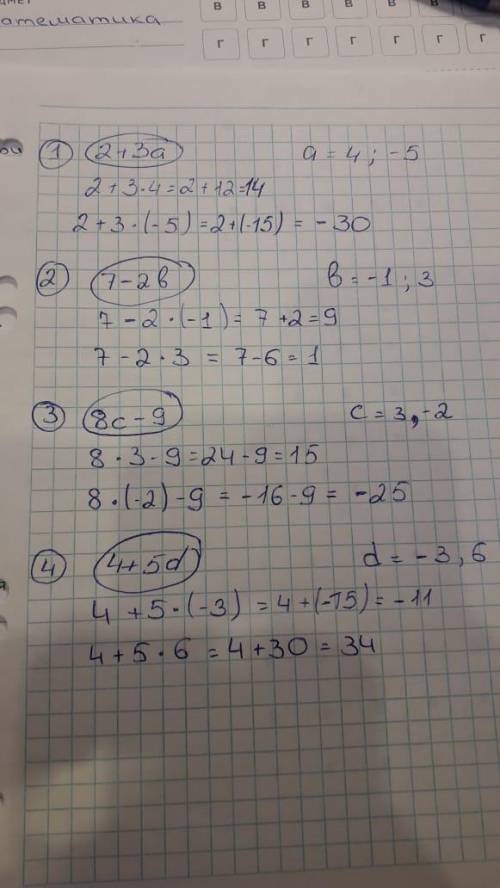 атематика
В В В В В
Г Г Г Г Г Г Г
① 2+3a a = 4 ; -5
2 + 3·4 = 2 + 12 = 14
2 + 3·(-5) = 2+(-15) = -30
② 7-2в в = -1 ; 3
7 - 2·(-1) = 7 + 2 = 9
7 - 2·3 = 7-6 = 1
③ 8c - 9 c = 3, -2
8·3 - 9 = 24 - 9 = 15
8·(-2) - 9 = -16 - 9 = -25
④ 4+5d d = -3, 6
4 + 5·(-3) = 4 + (-15) = -11
4 + 5·6 = 4 + 30 = 34